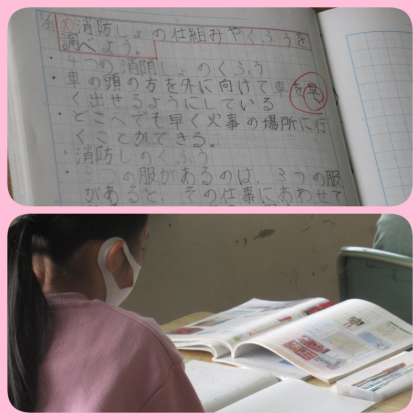 め消防しょの仕組みやくふうを
調べよう。
・4つの消防しょのくふう
・車の頭の方を外に向けて車を早
く出せるようにしている
・どこへでも早く火事の場所に行
くことができる。
・消防しのくふう
・3つの服があるのは、3つの服
があると、その仕事にあわせて